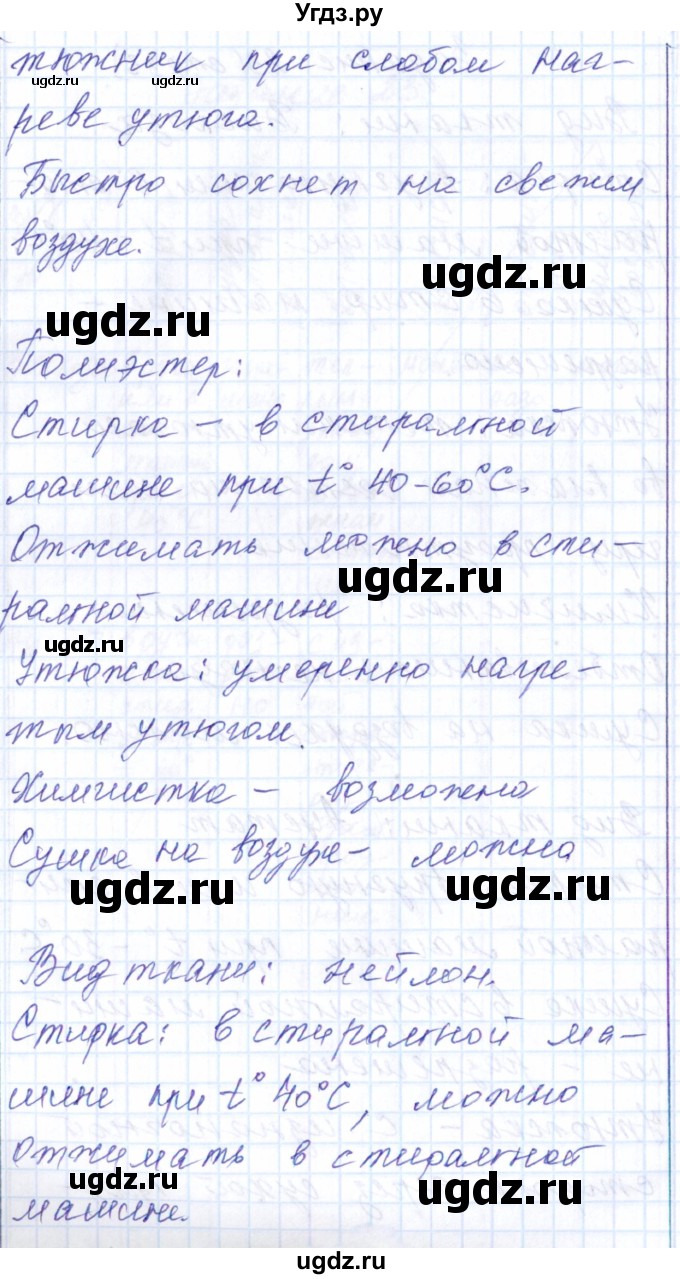 Угдз.ру
тюжник при слабом наг-
ugdz.ru ugdz.ru
реве утюга.
Быстро сохнет на свежим
воздухе.
ugdz.ru
ugdz.ru
Полиэстер:
Стирка – в стиральной
машине при t° 40-60°С.
Отжимать можно в сти-
ugdz.ru
ральной машине
ugdz.ru
Утюжка: умеренно нагре-
тым утюгом.
Химчистка – возможена
Сушка на воздухе – можна
ugdz.ru ugdz.ru
Вид ткани: нейлон.
Стирка: в стиральной ма-
шине при t° 40°С, можно
отжимать в стиральной
ugdz.ru ugdz.ru
машине.
ugdz.ru